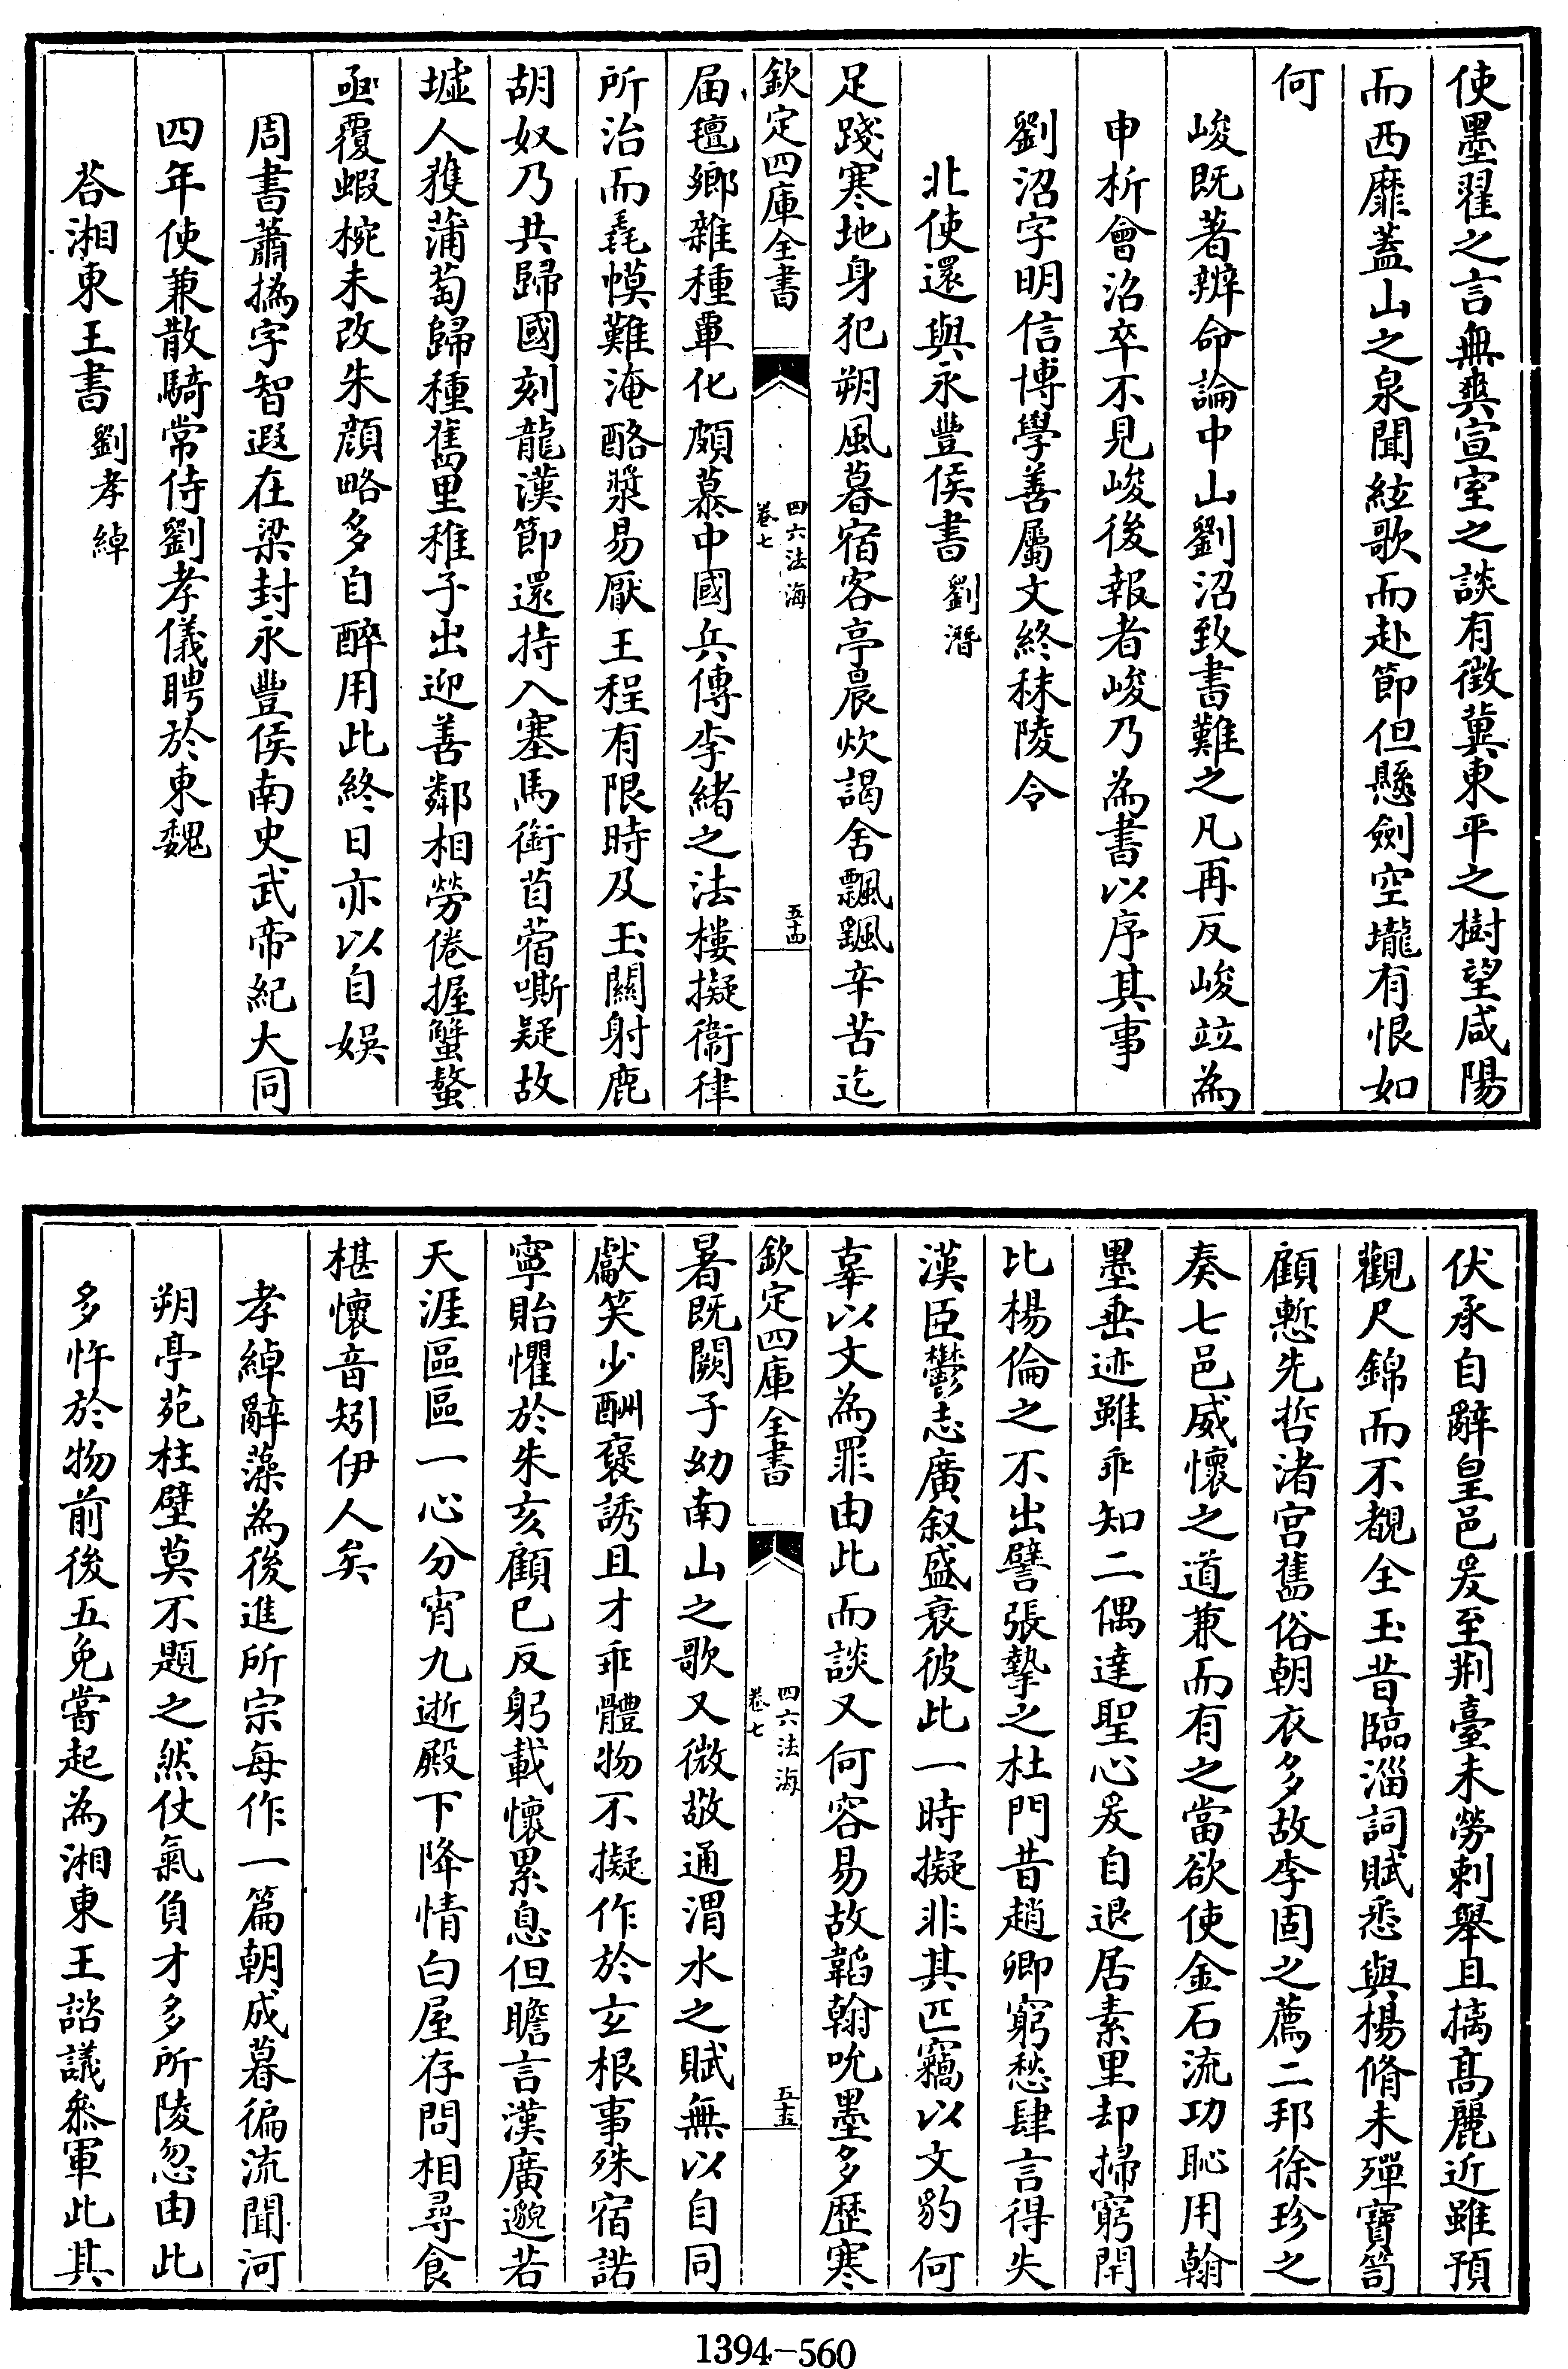 使墨翟之言無爽宣室之談有徵冀東平之樹望咸陽
而西靡蓋山之泉聞絃歌而赴節但懸劍空壠有恨如
何
峻既著辨命論中山劉沼致書難之凡再反峻竝為
申析會沼卒不見峻後報者峻乃為書以序其事
劉沼字明信博學善屬文終秣陵令
北使還與永豐侯書劉潛
足踐寒地身犯朔風暮宿客亭晨炊謁舍飄颻辛苦迄
欽定四庫全書
四六法海
卷七
五十四
屆氊鄉雜種覃化頗慕中國兵傳李緒之法樓擬衞律
所治而毳幙難淹酪漿易厭王程有限時及玉關射鹿
胡奴乃共歸國刻龍漢節還持入塞馬銜苜蓿嘶疑故
墟人獲蒲萄歸種舊里稚子出迎善鄰相勞倦握蟹螯
亟覆蝦椀未改朱顏略多自醉用此終日亦以自娛
周書蕭撝字智遐在梁封永豐侯南史武帝紀大同
四年使兼散騎常侍劉孝儀聘於東魏
荅湘東王書劉孝綽
伏承自辭皇邑爰至荆臺未勞刺舉且摛髙麗近雖預
觀尺錦而不覩全玉昔臨淄詞賦悉與楊脩未殫寶笥
顧慙先哲渚宫舊俗朝衣多故李固之薦二邦徐珍之
奏七邑威懷之道兼而有之當欲使金石流功恥用翰
墨垂迹雖乖知二偶達聖心爰自退居素里却掃窮閈
比楊倫之不出譬張摯之杜門昔趙卿窮愁肆言得失
漢臣鬱志廣叙盛衰彼此一時擬非其匹竊以文豹何
辜以文為罪由此而談又何容易故韜翰吮墨多歷寒
欽定四庫全書
四六法海
卷七
五十五
暑既闕子幼南山之歌又微敬通渭水之賦無以自同
獻笑少酬褒誘且才乖體物不擬作於玄根事殊宿諾
寧貽懼於朱亥顧已反躬載懷累息但瞻言漢廣邈若
天涯區區一心分宵九逝殿下降情白屋存問相尋食
椹懷音矧伊人矣
孝綽辭藻為後進所宗每作一篇朝成暮徧流聞河
朔亭苑柱壁莫不題之然仗氣負才多所陵忽由此
多忤於物前後五免嘗起為湘東王諮議叅軍此其
1394-560